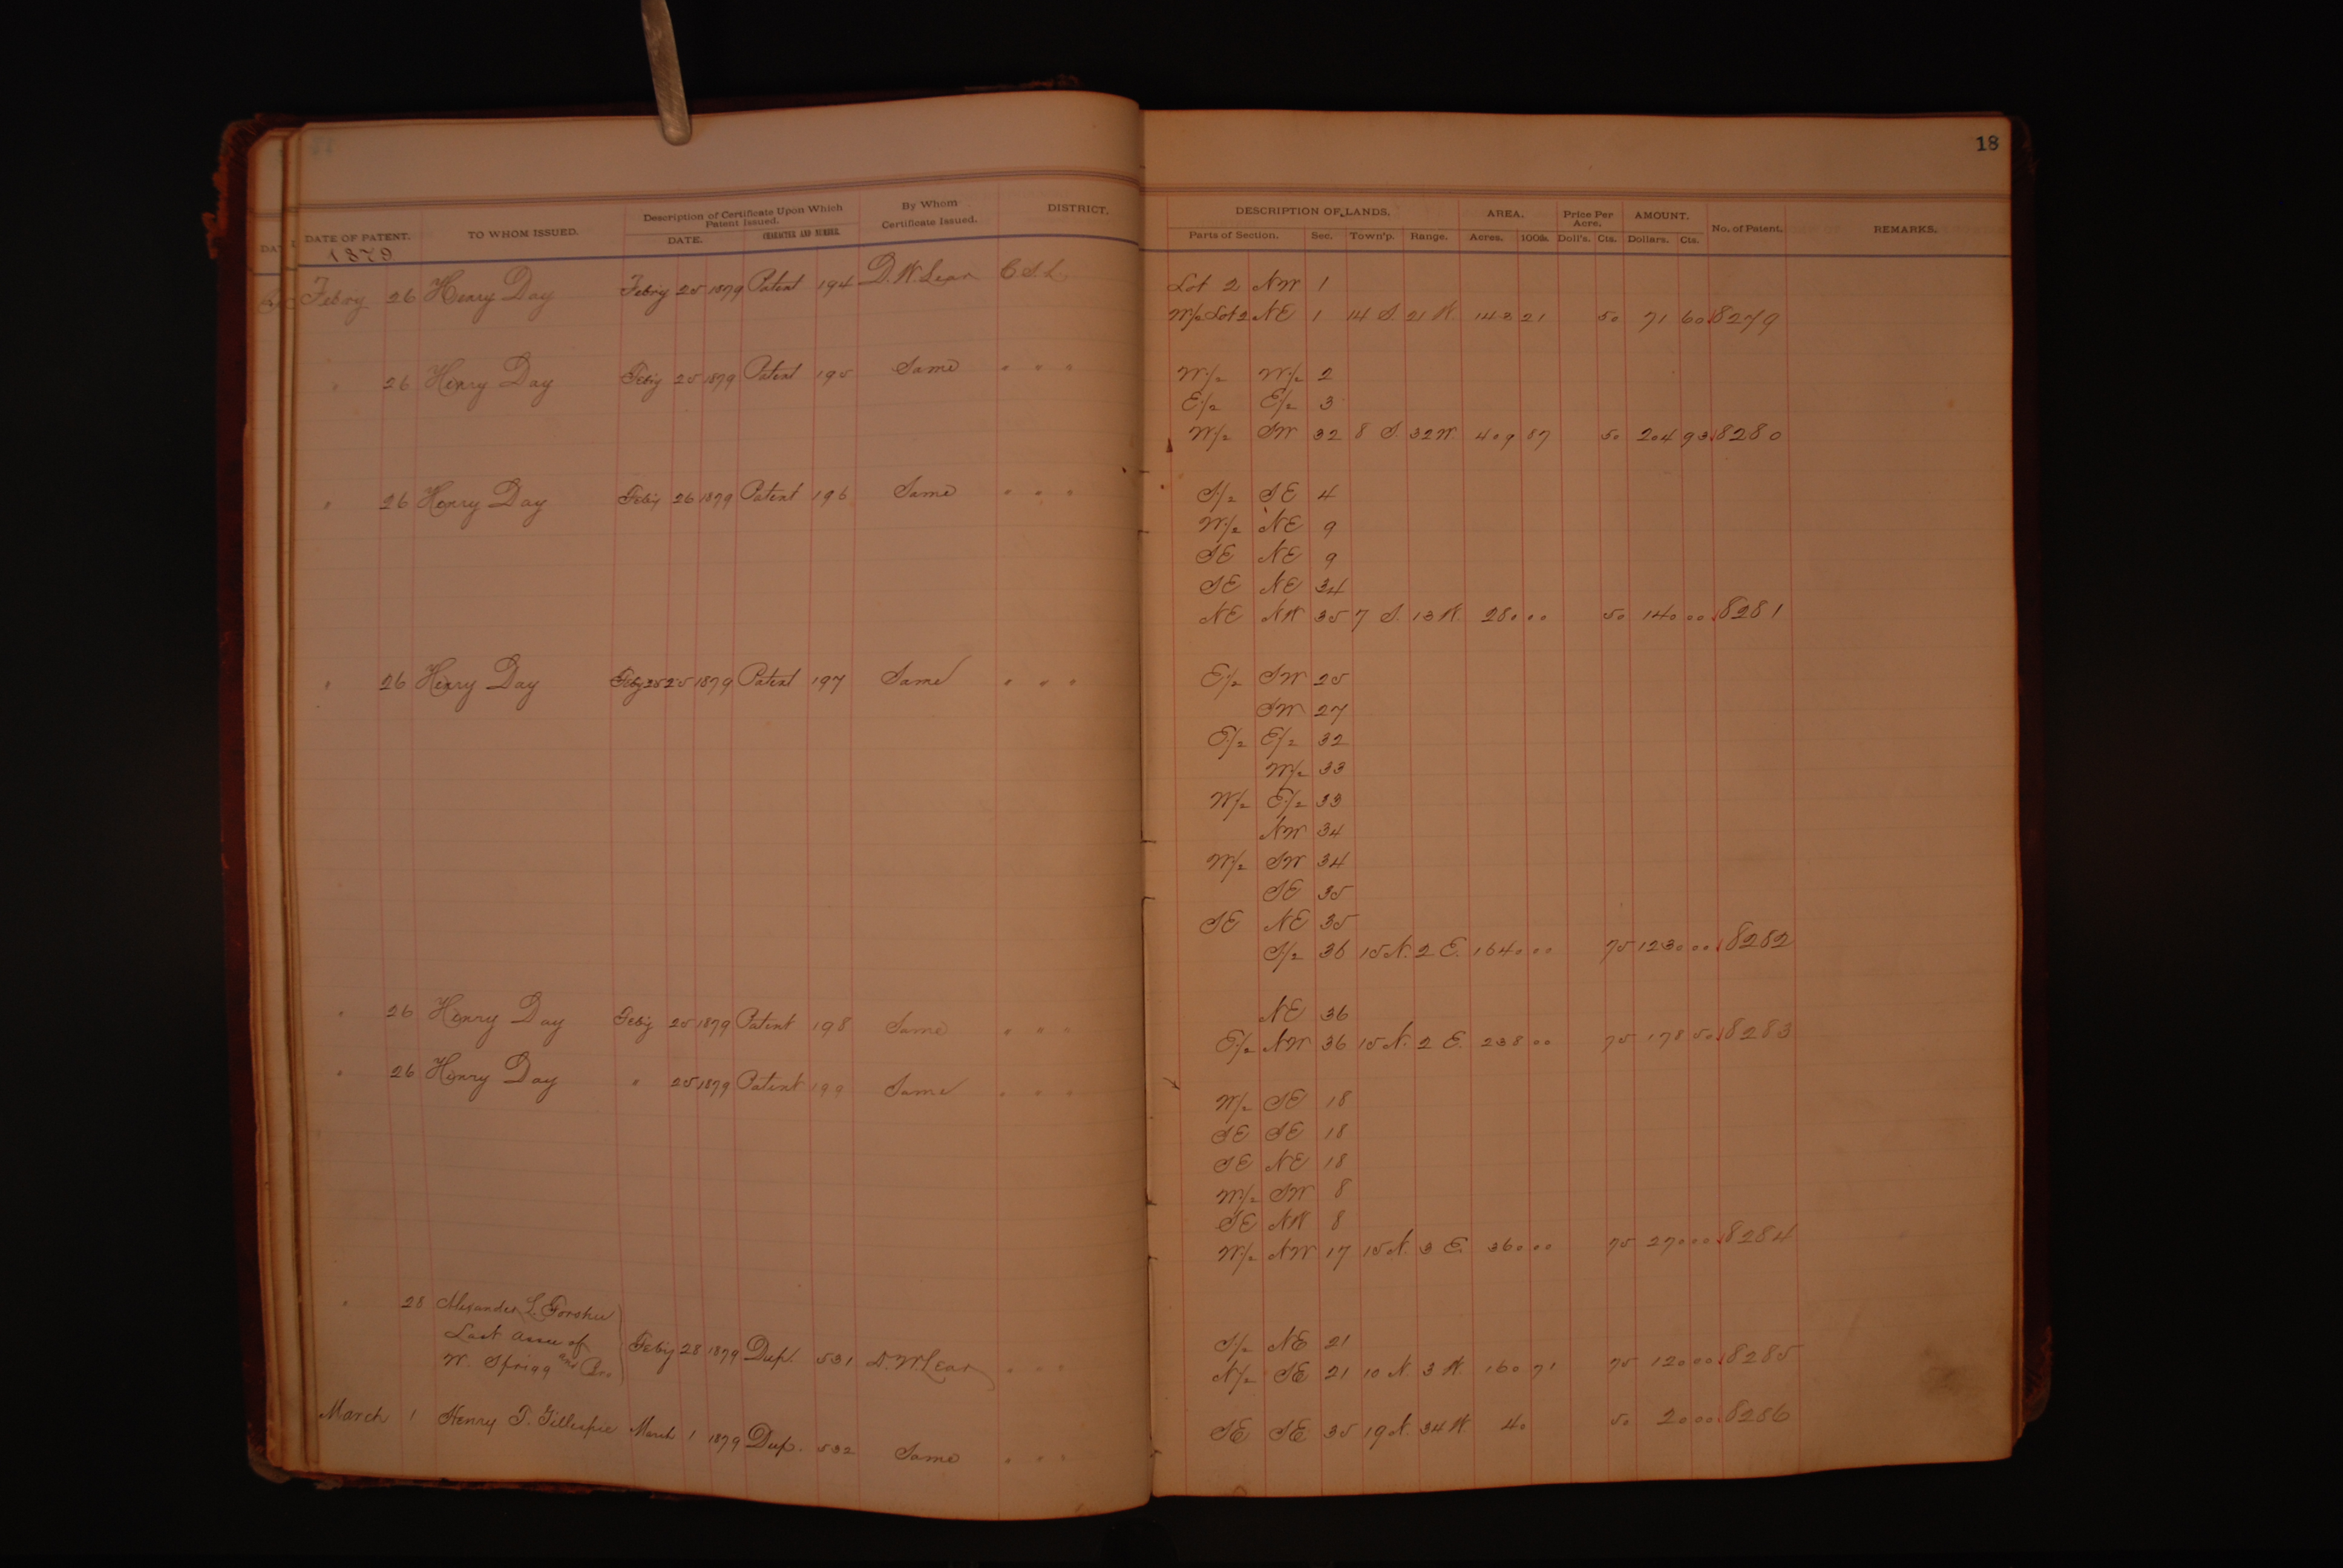 18
DATE OF PATENT. TO WHOM ISSUED. Description of Certificate Upon Which Patent Issued. By Whom Certificate Issued. DISTRICT. DESCRIPTION OF LANDS. AREA. Price Per Acre. AMOUNT. No. of Patent. REMARKS.
DATE. CHARACTER AND NUMBER. Parts of Section. Sec. Town'p. Range. Acres. 100ths. Doll's. Cts. Dollars. Cts.
1879
Feb'y 26 Henry Day Feb'y 25 1879 Patent 194 D. W. Lear C S L Lot 2 NW 1
W/2 Lot 2 NE 1 14 S. 21 W. 143 21 50 71 60 8279
" 26 Henry Day Feb'y 25 1879 Patent 195 Same " " " W/2 W/2 2
E/2 E/2 3
W/2 SW 32 8 S. 32 W. 409 87 50 204 93 8280
" 26 Henry Day Feb'y 26 1879 Patent 196 Same " " " S/2 SE 4
W/2 NE 9
SE NE 9
SE NE 34
NE NW 35 7 S. 13 W. 280 00 50 140 00 8281
" 26 Henry Day Feb'y 25 1879 Patent 197 Same " " " E/2 SW 25
SW 27
E/2 E/2 32
W/2 33
W/2 E/2 33
NW 34
W/2 SW 34
SE 35
SE NE 35
S/2 36 15 N. 2 E. 1640 00 75 1230 00 8282
" 26 Henry Day Feb'y 25 1879 Patent 198 Same " " " NE 36
E/2 NW 36 15 N. 2 E. 238 00 75 178 50 8283
" 26 Henry Day " 25 1879 Patent 199 Same " " " W/2 SE 18
SE SE 18
SE NE 18
W/2 SW 8
SE NW 8
W/2 NW 17 15 N. 3 E. 360 00 75 270 00 8284
" 28 Alexander L. Forshee
Last Assee of
W. Sprigg and Bro Feb'y 28 1879 Dup. 531 D. W. Lear " " " S/2 NE 21
N/2 SE 21 10 N. 3 W. 160 71 75 120 00 8285
March 1 Henry T. Gillespie March 1 1879 Dup. 532 Same " " " SE SE 35 19 N. 34 W. 40 50 20 00 8286